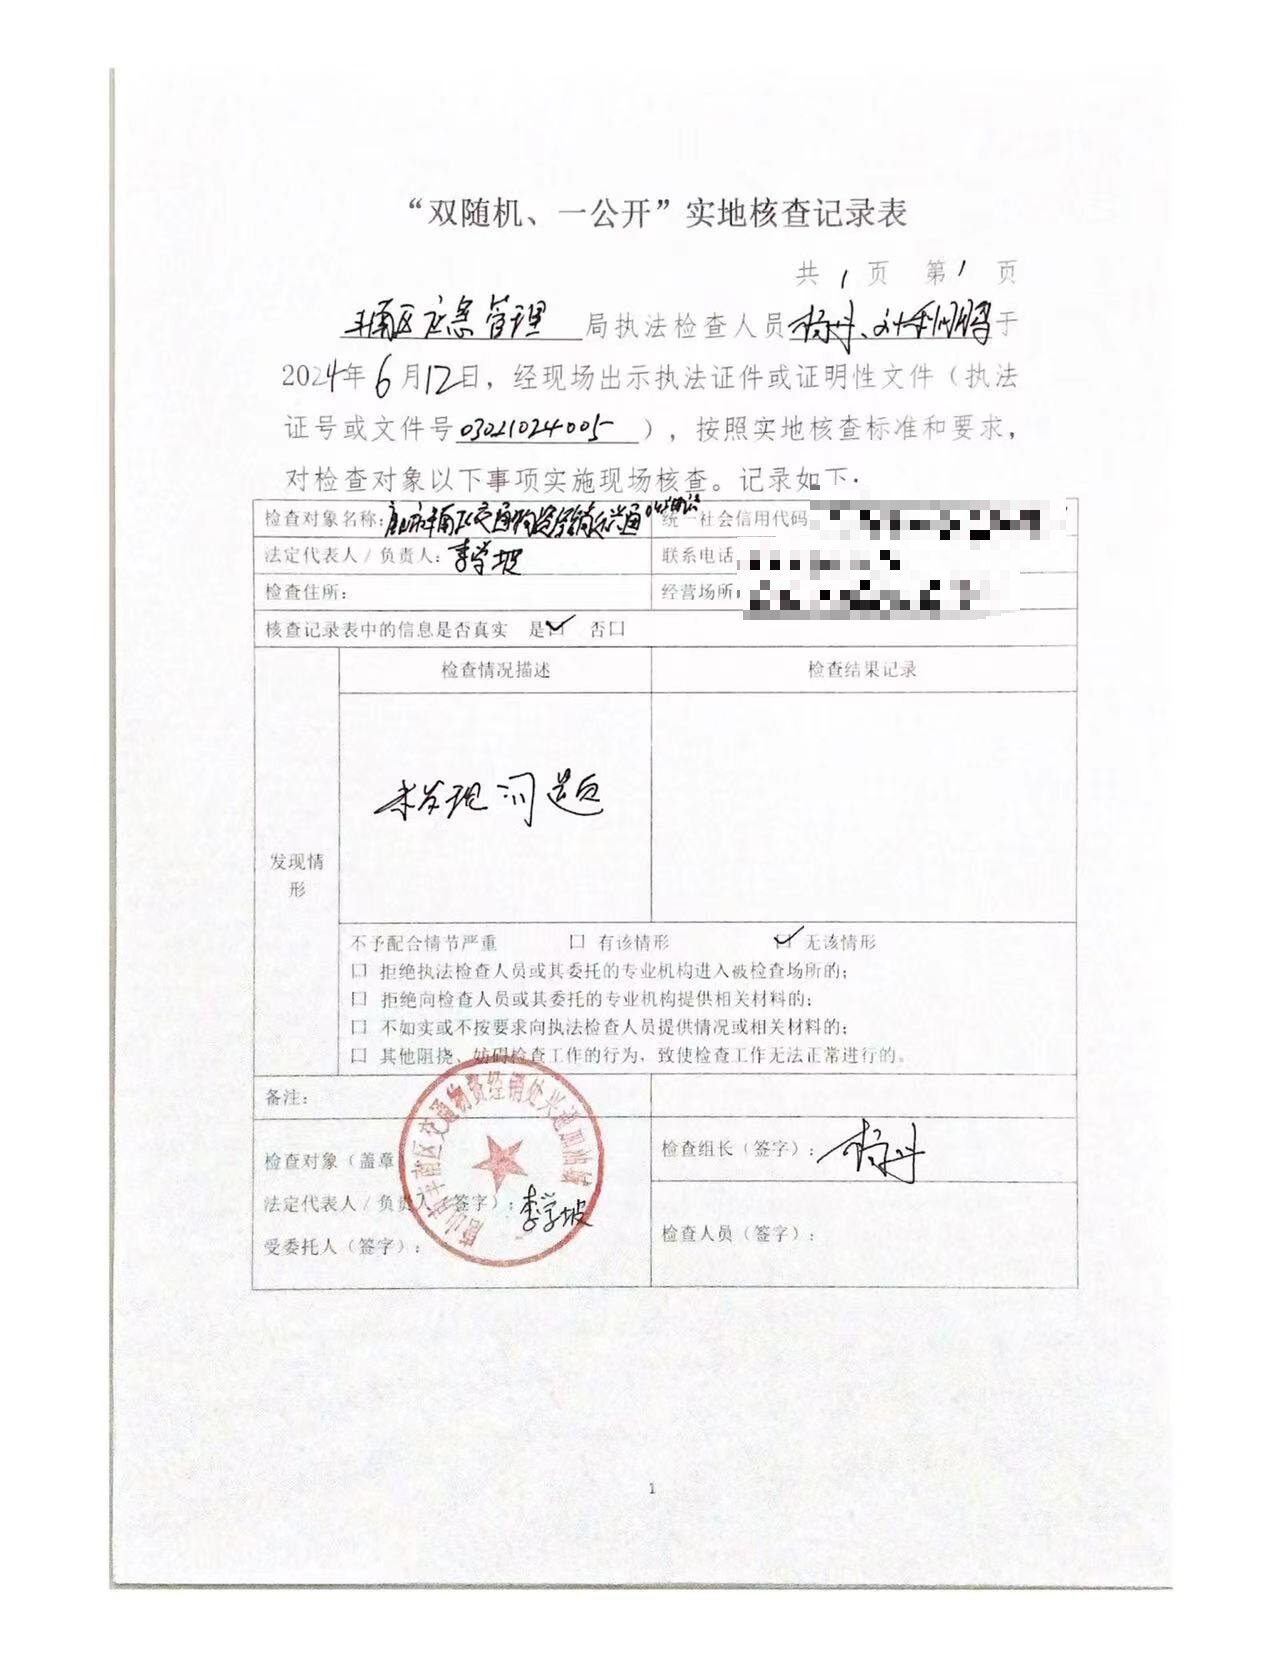 “双随机、一公开”实地核查记录表
共 1 页 第 1 页
丰南区应急管理 局执法检查人员 杨丹、于
2024年6月12日，经现场出示执法证件或证明性文件（执法
证号或文件号03021024005），按照实地核查标准和要求，
对检查对象以下事项实施现场核查。记录如下.
检查对象名称: 唐山市丰南区交通物资经销处兴通加油站 统一社会信用代码
法定代表人/负责人: 李学坡 联系电话
检查住所: 经营场所:
核查记录表中的信息是否真实 是☑ 否□
检查情况描述 检查结果记录
未发现问题
发现情
形
不予配合情节严重 □ 有该情形 ☑ 无该情形
□ 拒绝执法检查人员或其委托的专业机构进入被检查场所的;
□ 拒绝向检查人员或其委托的专业机构提供相关材料的;
□ 不如实或不按要求向执法检查人员提供情况或相关材料的;
□ 其他阻挠、妨码检查工作的行为，致使检查工作无法正常进行的。
备注:
唐山市丰南区交通物资经销处兴通加油站
检查对象（盖章
检查组长（签字）: 杨丹
法定代表人/负责人（签字）: 李学坡
检查人员（签字）:
受委托人（签字）:
1